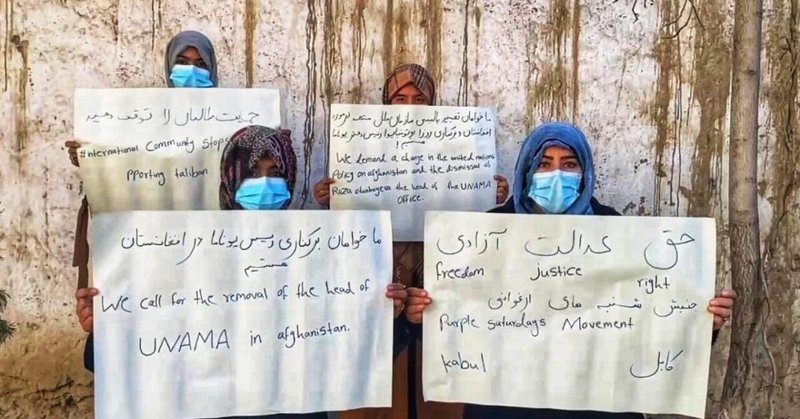 حمایت طالبان را توقف دهید
#international Community stops
pporting taliban
ما خواهان تغییر پالیسی سازمان ملل متحد در مورد
افغانستان و برکناری روزا اوتونبایوا رییس دفتر یوناما
هستیم !
We demand a change in the united nations
Policy on afghanistan and the dismissal of
Roza otunbayeva the head of the UNAMA
office.
ما خواهان برکناری رییس یوناما در افغانستان
هستیم
We call for the removal of the head of
UNAMA in afghanistan.
حق عدالت آزادی
freedom justice right
جنبش شنبه های ارغوانی
Purple saturdays Movement
kabul کابل